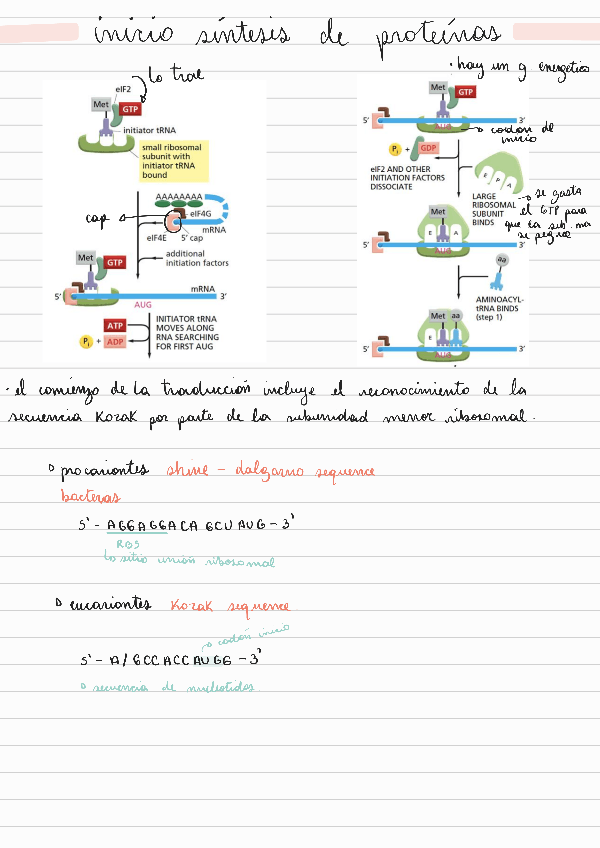 inicio síntesis de proteínas
Lo trae
eIF2
Met
GTP
initiator tRNA
small ribosomal
subunit with
initiator tRNA
bound
AAAAAAAA
cap
eIF4G
mRNA
eIF4E
5' cap
additional
initiation factors
Met
GTP
mRNA
5'
3'
AUG
ATP
INITIATOR tRNA
MOVES ALONG
RNA SEARCHING
FOR FIRST AUG
Pi + ADP
· hay un g energético
Met
GTP
5'
3'
AUG
codón de
inicio
Pi + GDP
eIF2 AND OTHER
INITIATION FACTORS
DISSOCIATE
E P A
LARGE
RIBOSOMAL
SUBUNIT
BINDS
se gasta
el GTP para
que la sub. ma
se pegue
Met
E A
5'
3'
AUG
aa
AMINOACYL-
tRNA BINDS
(step 1)
Met aa
E
5'
3'
AUG
· el comienzo de la traducción incluye el reconocimiento de la
secuencia Kozak por parte de la subunidad menor ribosomal.
procariontes shine - dalgarno sequence
bacteras
5' - AGGAGGACA GCU AUG - 3'
RBS
sitio unión ribosomal
eucariontes Kozak sequence
codón inicio
5' - A/GCCACCAUGG - 3'
secuencia de nucleotidos